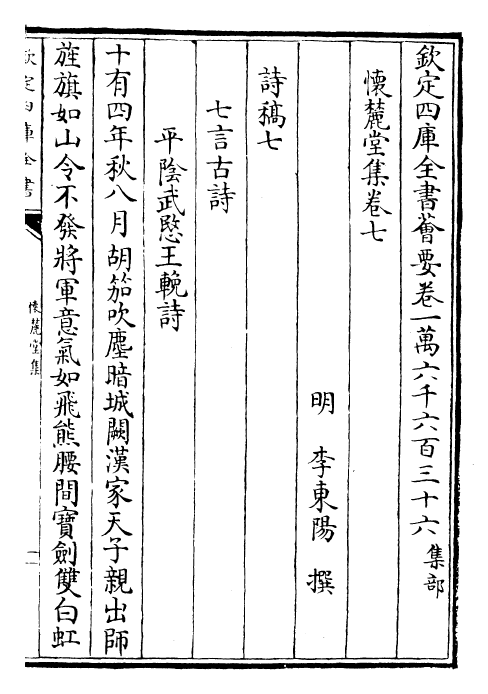 欽定四庫全書薈要卷一萬六千六百三十六集部
懷麓堂集卷七
明 李東陽 撰
詩稿七
七言古詩
平陰武愍王輓詩
十有四年秋八月胡笳吹塵暗城闕漢家天子親出師
旌旗如山令不發將軍意氣如飛熊腰間寶劍雙白虹
欽定四庫全書
懷麓堂集
一